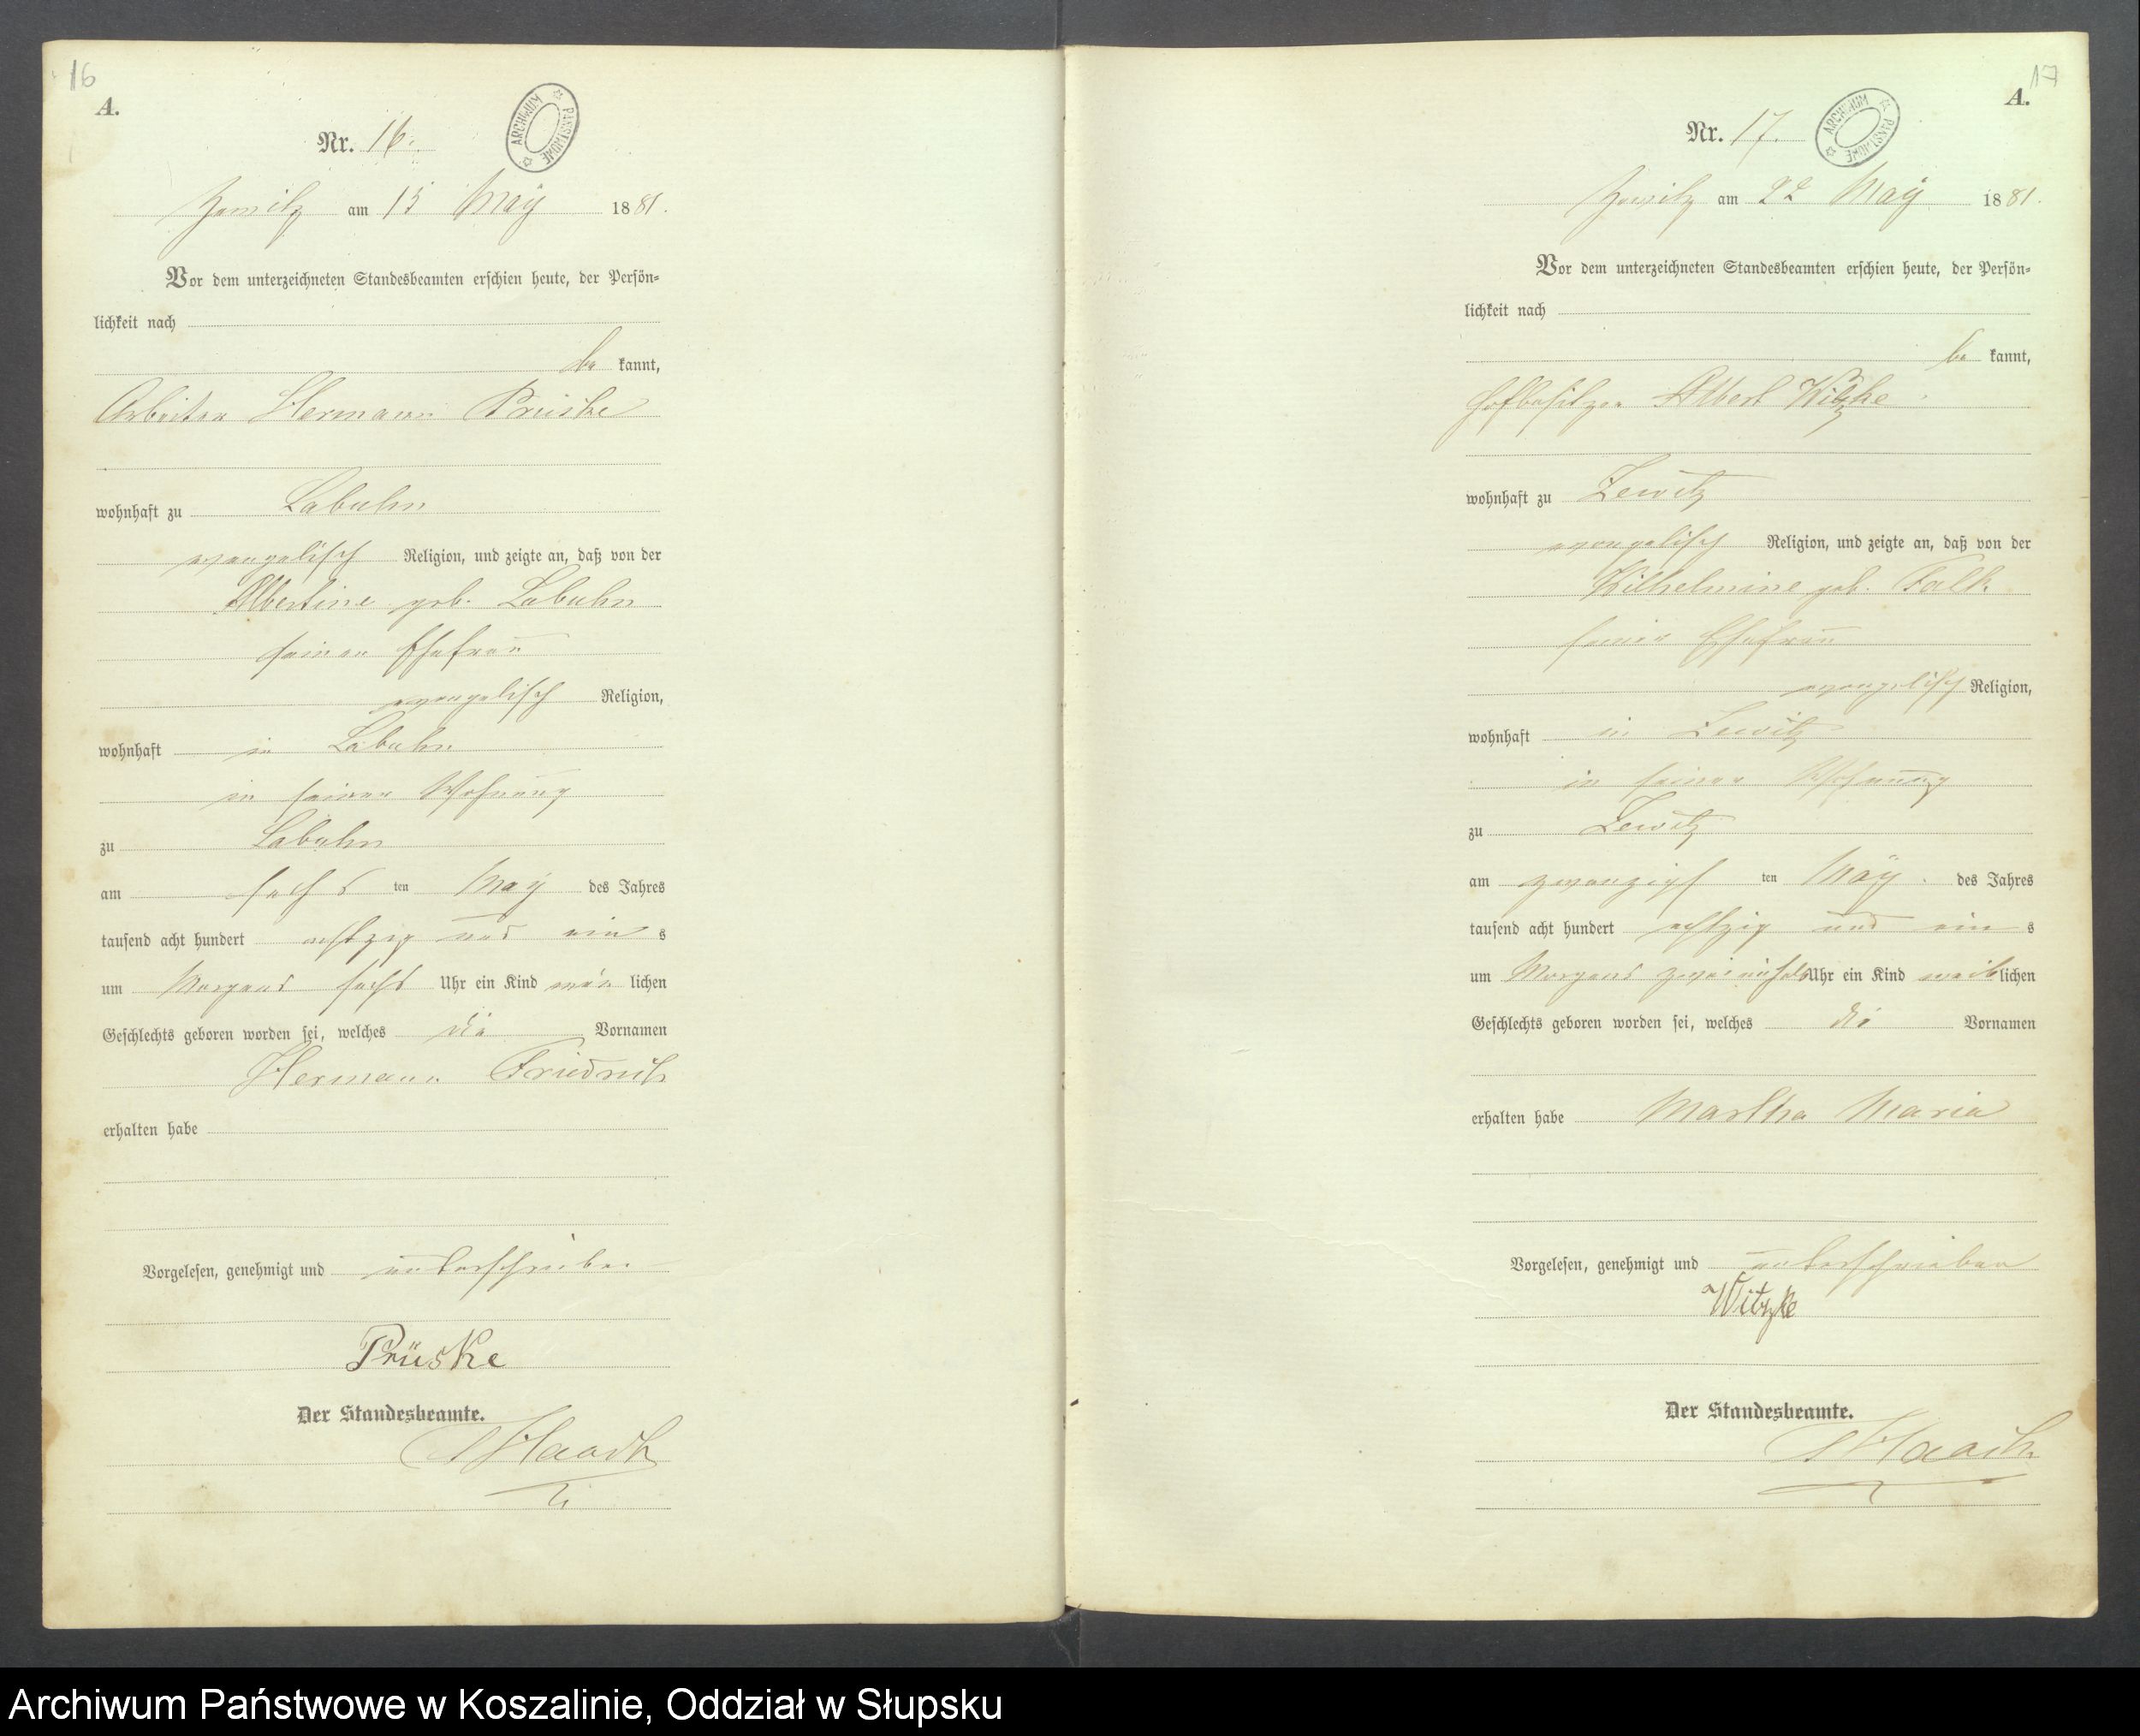 16
A.
Nr. 16.
ARCHIWUM PAŃSTWOWE
Zewitz am 13 May 1881.
Vor dem unterzeichneten Standesbeamten erschien heute, der Persön=
lichkeit nach
be kannt,
Arbeiter Hermann Prüske
wohnhaft zu Labuhn
evangelisch Religion, und zeigte an, daß von der
Albertine geb. Labuhn
seiner Ehefrau
evangelisch Religion,
wohnhaft in Labuhn
in seiner Wohnung
zu Labuhn
am sechs ten May des Jahres
tausend acht hundert achtzig und ein s
um Morgens sechs Uhr ein Kind män lichen
Geschlechts geboren worden sei, welches die Vornamen
Hermann Friedrich
erhalten habe
Vorgelesen, genehmigt und unterschrieben
Prüske
Der Standesbeamte.
Haack
17
A.
Nr. 17.
ARCHIWUM PAŃSTWOWE
Zewitz am 22 May 1881.
Vor dem unterzeichneten Standesbeamten erschien heute, der Persön=
lichkeit nach
be kannt,
Hofbesitzer Albert Witzke
wohnhaft zu Zewitz
evangelisch Religion, und zeigte an, daß von der
Wilhelmine geb. Falk
seiner Ehefrau
evangelisch Religion,
wohnhaft in Zewitz
in seiner Wohnung
zu Zewitz
am zwanzigs ten May. des Jahres
tausend acht hundert achtzig und ein s
um Morgens Uhr ein Kind weib lichen
Geschlechts geboren worden sei, welches die Vornamen
erhalten habe Martha Maria
Vorgelesen, genehmigt und unterschrieben
Witzke
Der Standesbeamte.
Haack
Archiwum Państwowe w Koszalinie, Oddział w Słupsku